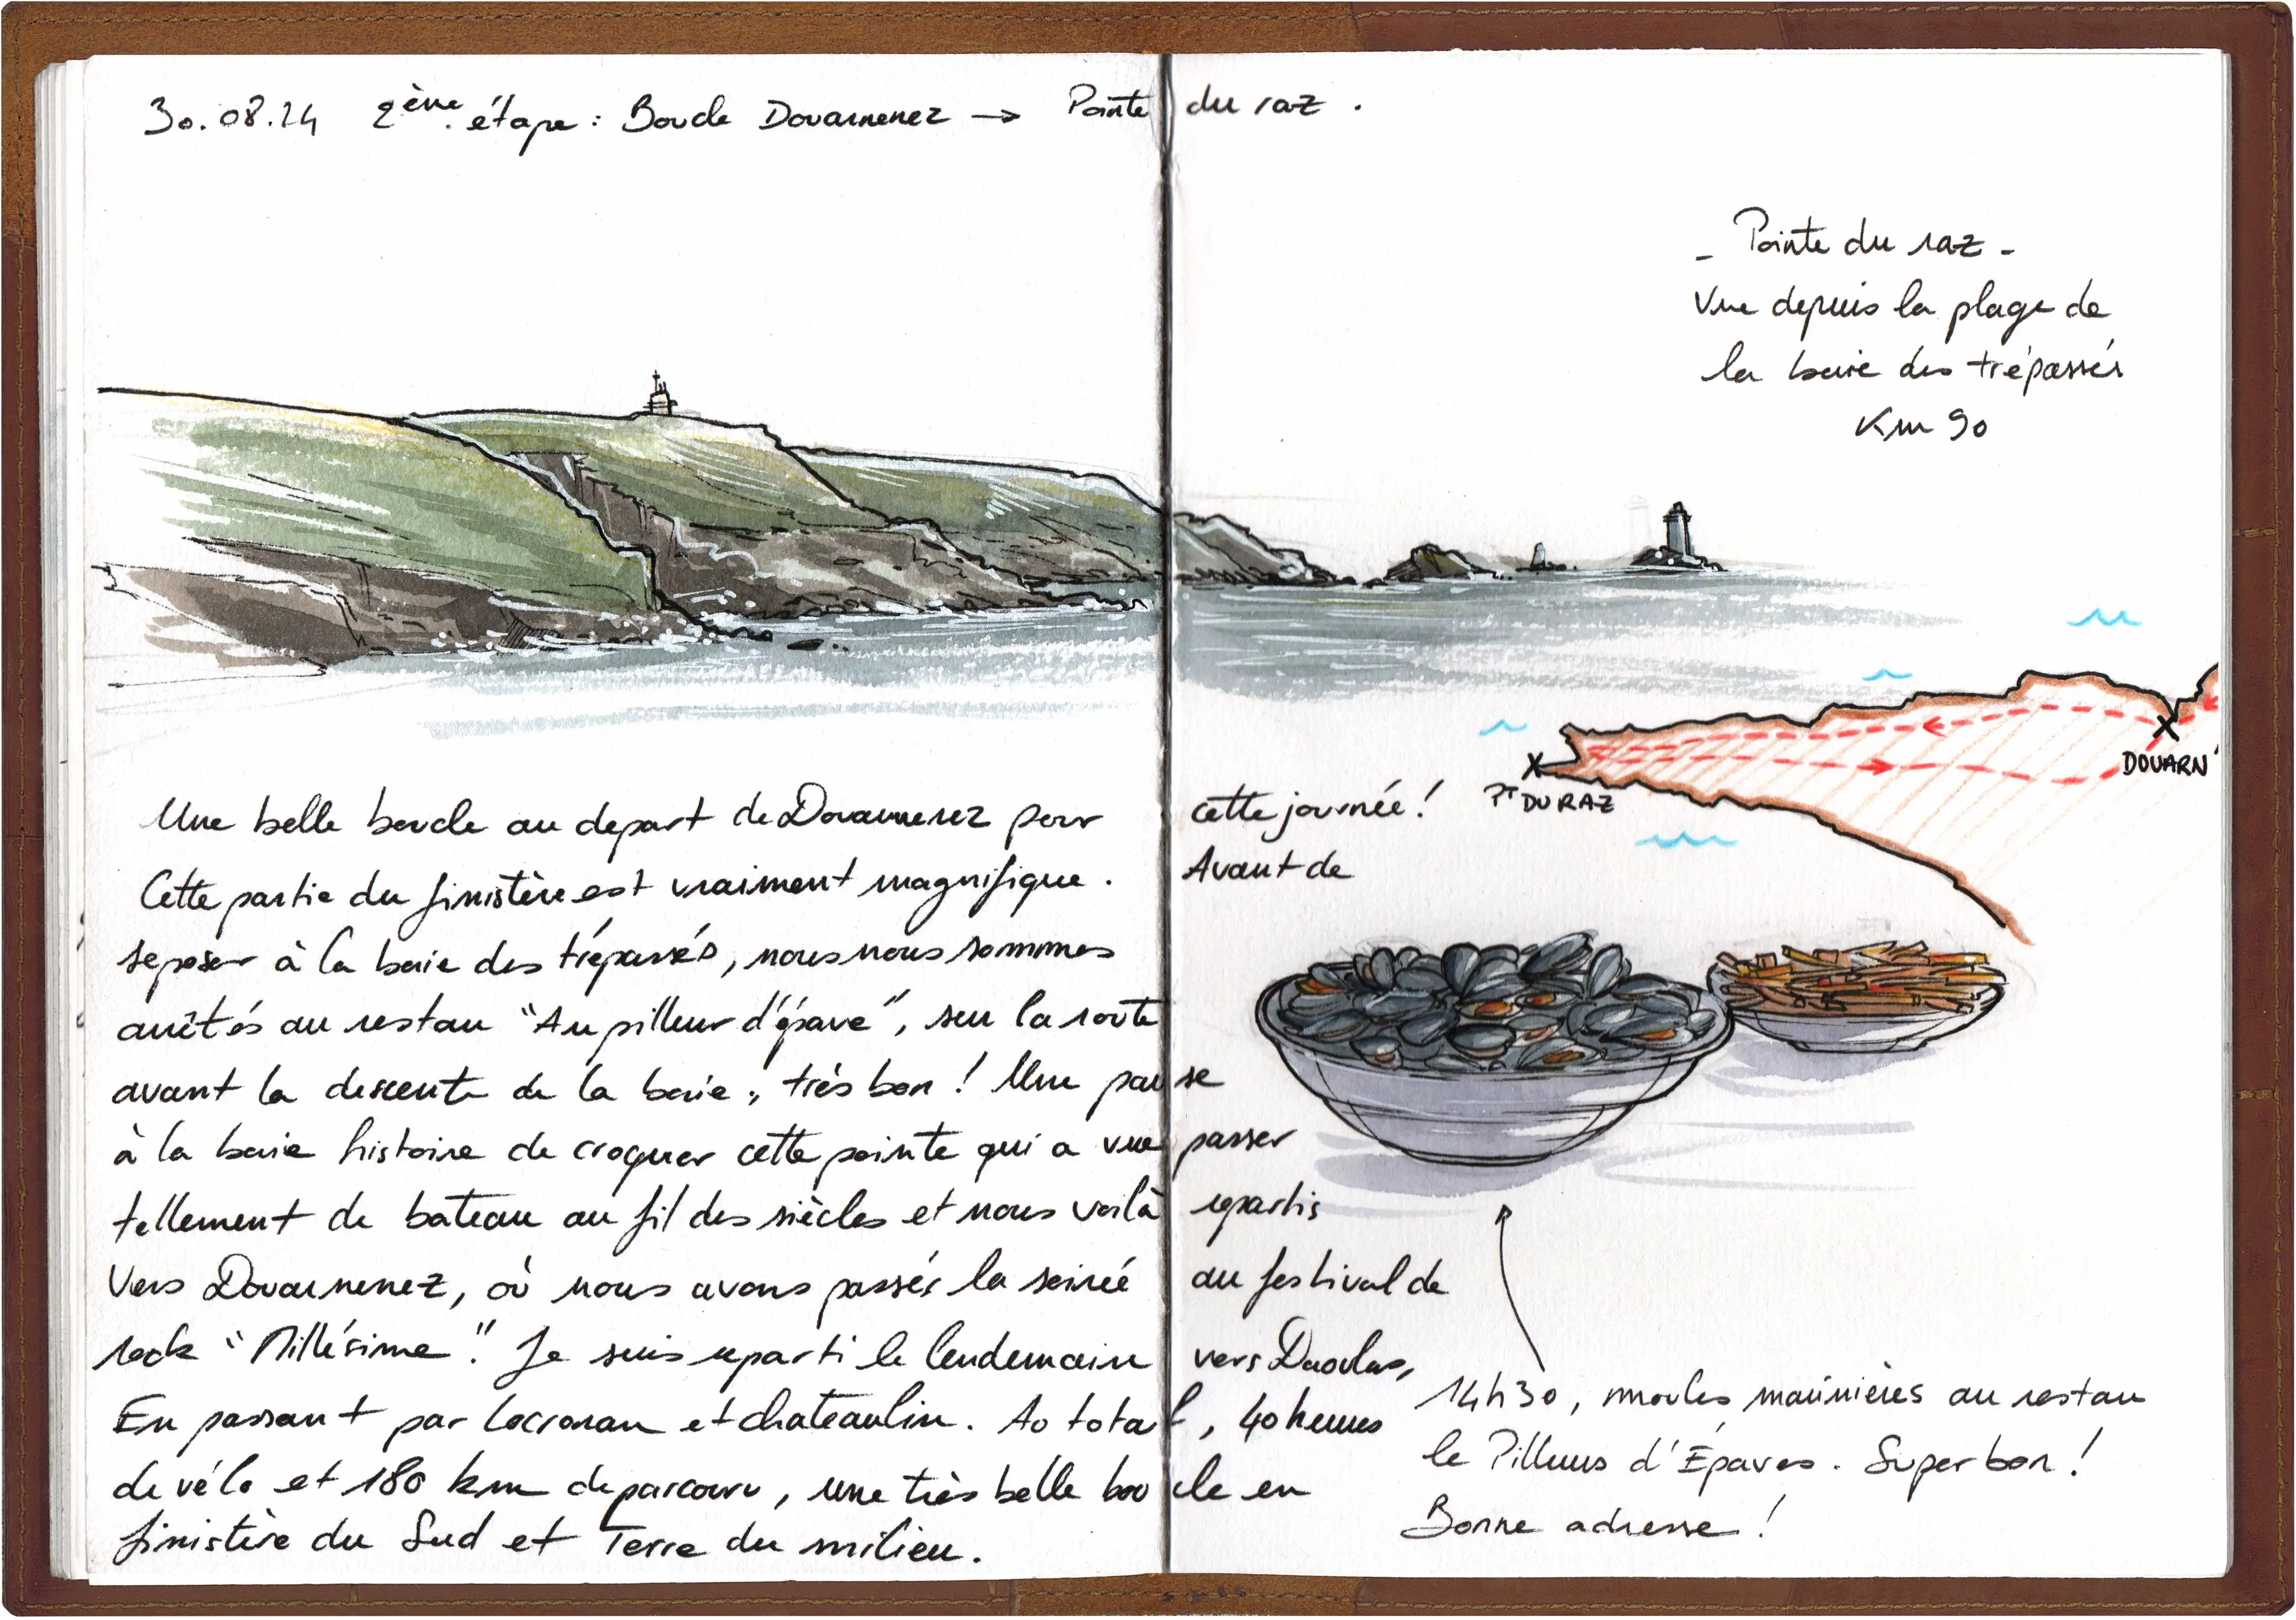 30.08.24 2ème étape : Boucle Douarnenez → Pointe du raz .
- Pointe du raz -
Vue depuis la plage de
la baie des trépassés
Km 90
DOUARN'
PT DU RAZ
Une belle boucle au depart de Douarnenez pour cette journée !
Cette partie du finistère est vraiment magnifique . Avant de
se poser à la baie des trépassés, nous nous sommes
arrêtés au restau "Au pilleur d'épave", sur la route
avant la descente de la baie ; très bon ! Une pause
à la baie histoire de croquer cette pointe qui a vue passer
tellement de bateau au fil des siècles et nous voilà repartis
vers Douarnenez, où nous avons passés la soirée au festival de
rock "Millésime". Je suis reparti le lendemain vers Daoulas,
En passant par Locronan et chateaulin. Au total, 40 heures
de vélo et 180 km de parcouru, une très belle boucle en
finistère du Sud et Terre du milieu.
14h30, moules marinières au restau
le Pilleurs d'Épaves. Super bon !
Bonne adresse !